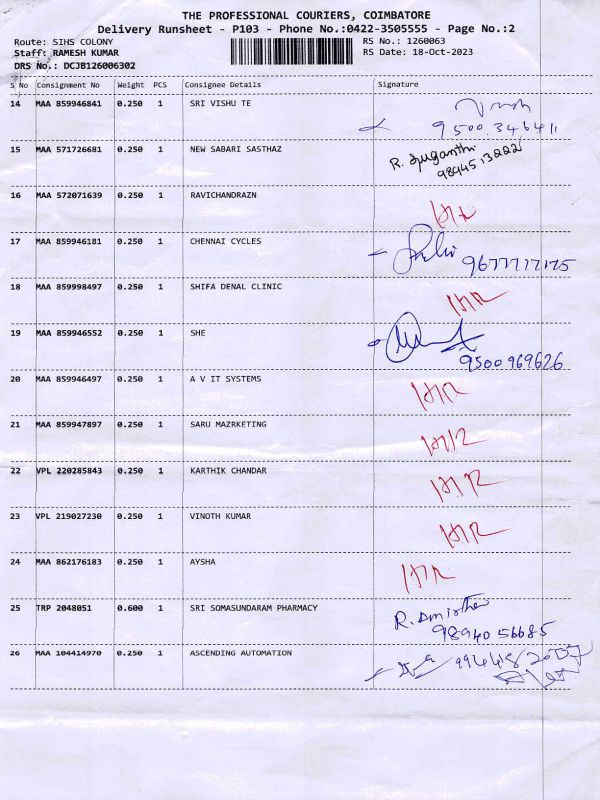 THE PROFESSIONAL COURIERS, COIMBATORE
Delivery Runsheet - P103 - Phone No.:0422-3505555 - Page No.:2
Route: SIHS COLONY RS No.: 1260063
Staff: RAMESH KUMAR RS Date: 18-Oct-2023
DRS No.: DCJB126006302
S No Consignment No Weight PCS Consignee Details Signature
14 MAA 859946841 0.250 1 SRI VISHU TE
9500346411
15 MAA 571726681 0.250 1 NEW SABARI SASTHAZ R. Suganthi
9894513222
16 MAA 572071639 0.250 1 RAVICHANDRAZN
17 MAA 859946181 0.250 1 CHENNAI CYCLES
9677717175
18 MAA 859998497 0.250 1 SHIFA DENAL CLINIC
19 MAA 859946552 0.250 1 SHE
9500969626
20 MAA 859946497 0.250 1 A V IT SYSTEMS
21 MAA 859947897 0.250 1 SARU MAZRKETING
22 VPL 220285843 0.250 1 KARTHIK CHANDAR
23 VPL 219027230 0.250 1 VINOTH KUMAR
24 MAA 862176183 0.250 1 AYSHA
25 TRP 2048051 0.600 1 SRI SOMASUNDARAM PHARMACY R. Amirtha
9894056685
26 MAA 104414970 0.250 1 ASCENDING AUTOMATION